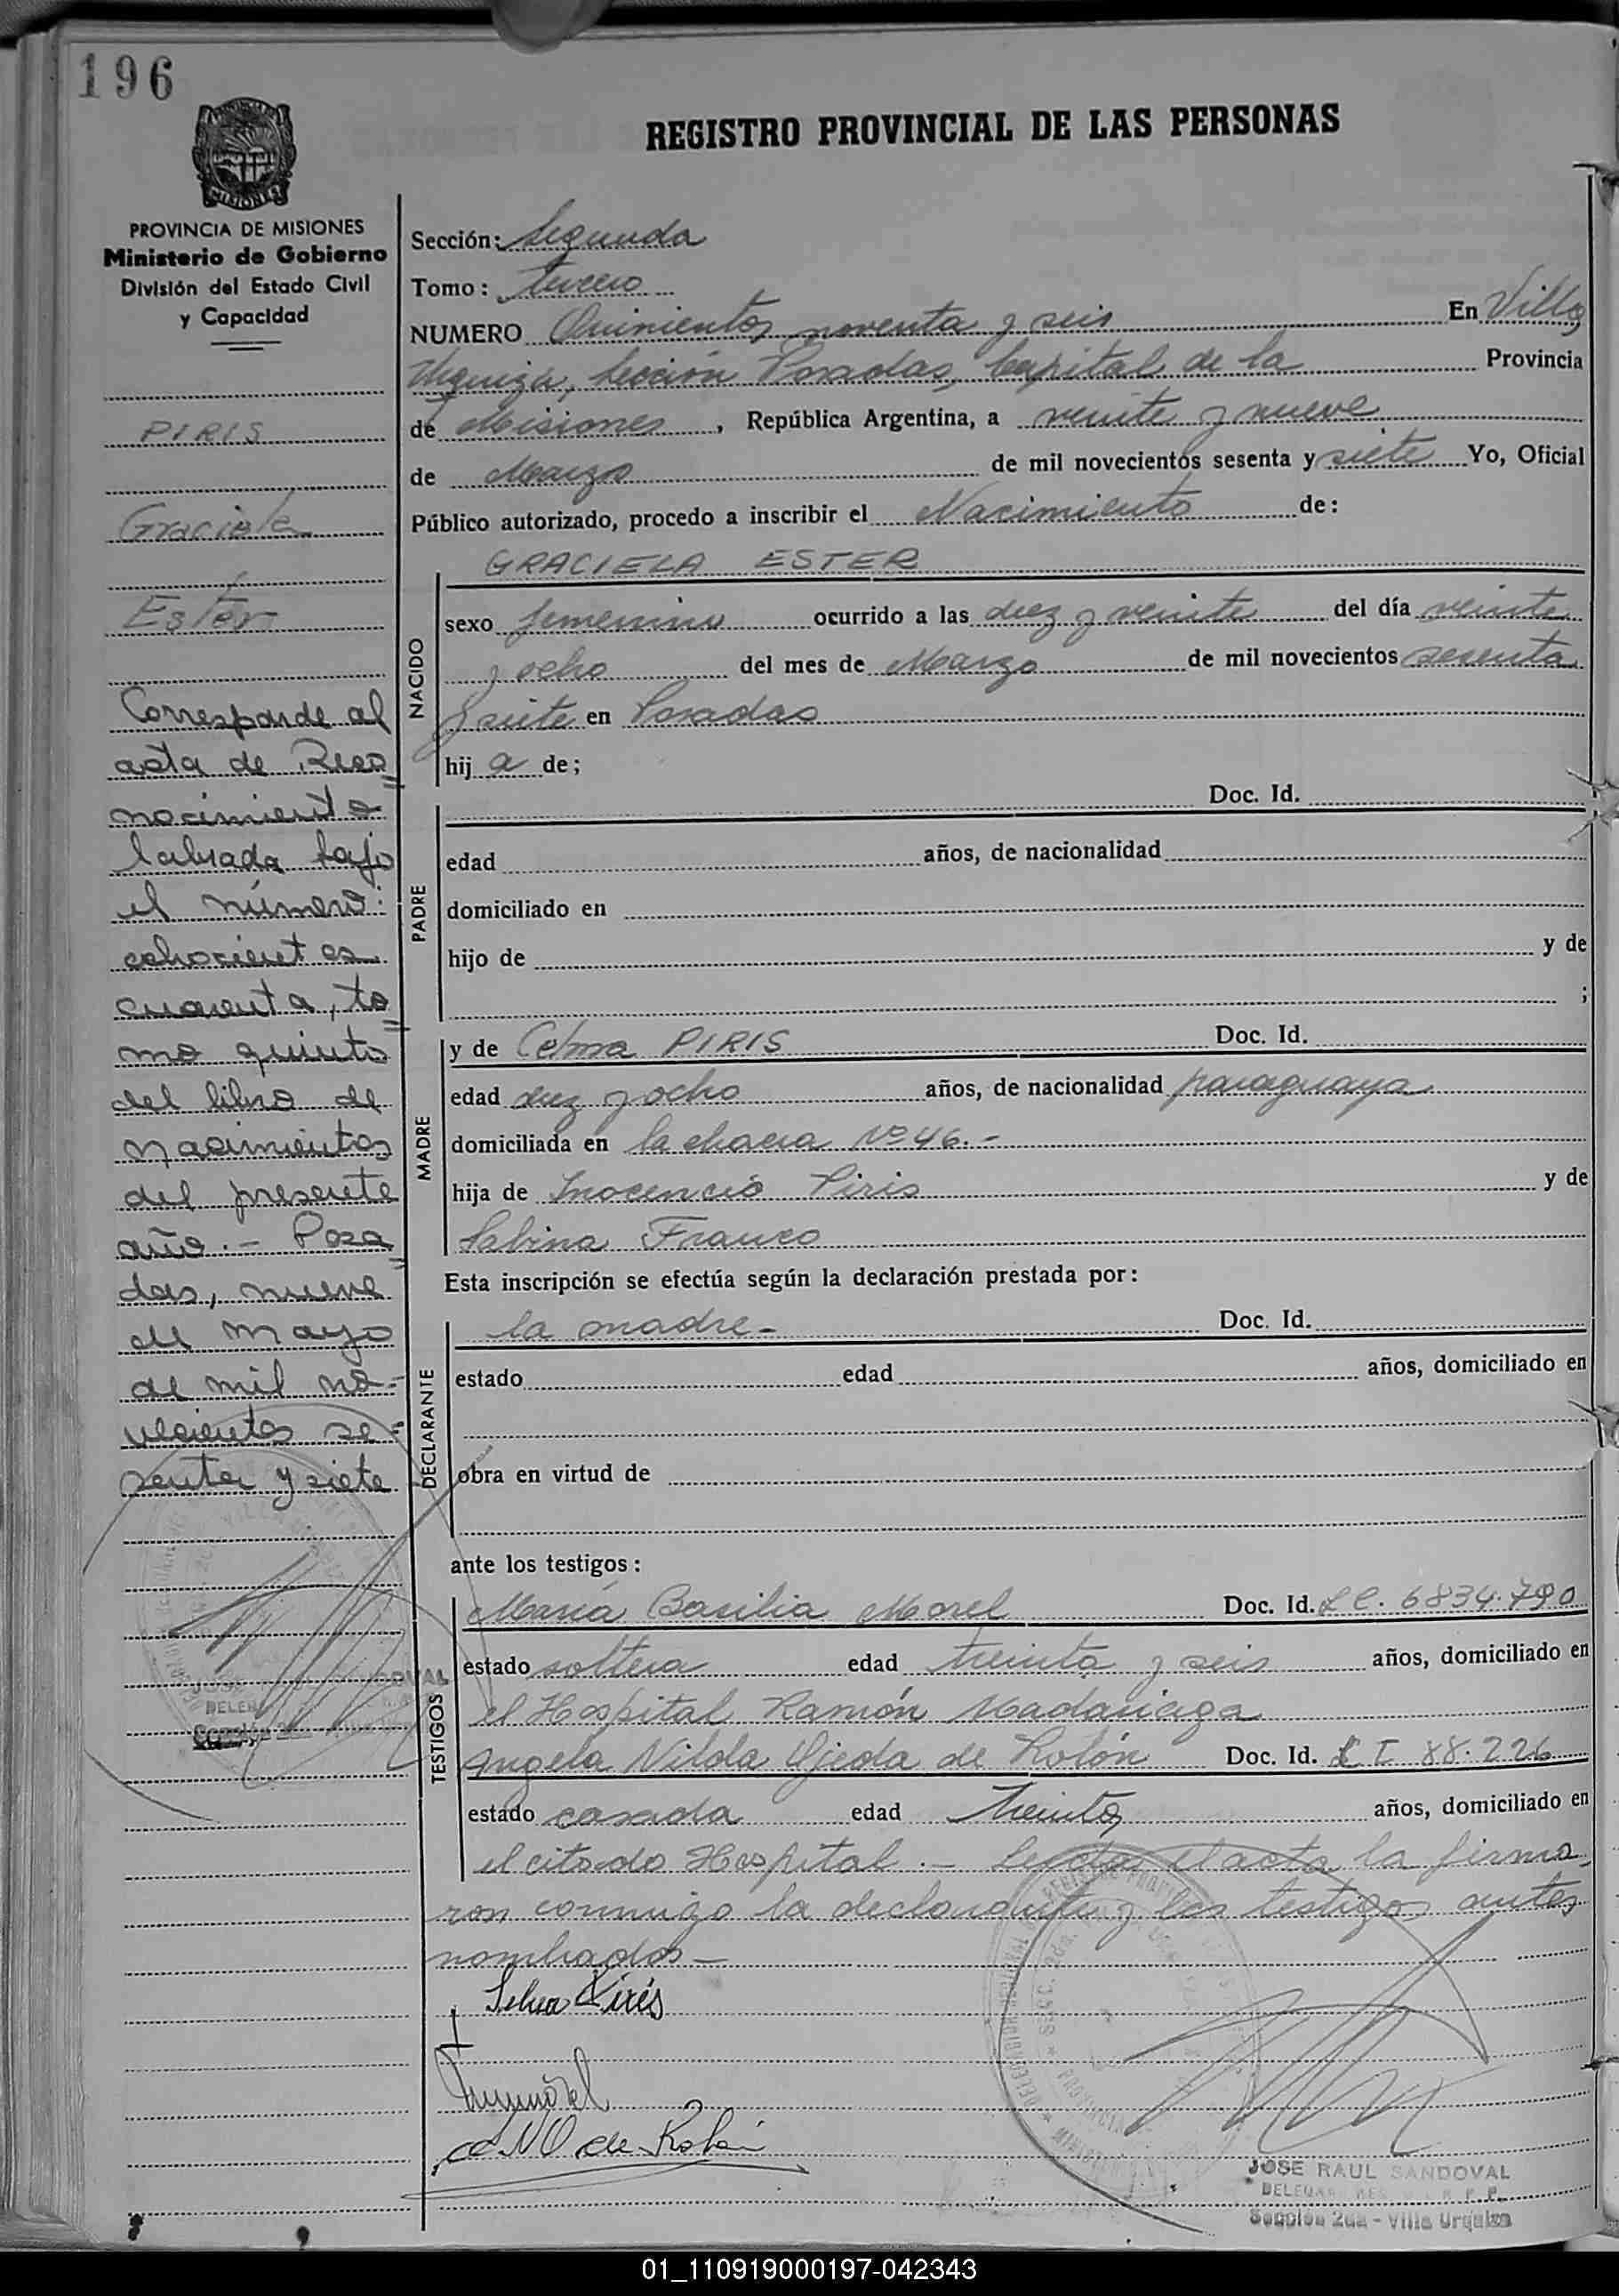 196
REGISTRO PROVINCIAL DE LAS PERSONAS
MISIONES
PROVINCIA DE MISIONES
Ministerio de Gobierno
División del Estado Civil
y Capacidad
PIRIS
Graciela
Ester
Corresponde al
acta de Reco=
nocimiento
labrada bajo
el número:
ochocientos
cuarenta, to=
mo quinto
del libro de
nacimientos
del presente
año.- Posa=
das, nueve
de mayo
de mil no-
vecientos se=
senta y siete
Sección: Segunda
Tomo: tercero
NUMERO Quinientos noventa y seis En Villa
Urquiza, Sección Posadas, Capital de la Provincia
de Misiones, República Argentina, a veinte y nueve
de Marzo de mil novecientos sesenta y siete Yo, Oficial
Público autorizado, procedo a inscribir el Nacimiento de:
GRACIELA ESTER
NACIDO
sexo femenino ocurrido a las diez y veinte del día veinte
y ocho del mes de Marzo de mil novecientos sesenta
y siete en Posadas
hij a de;
Doc. Id.
PADRE
edad años, de nacionalidad
domiciliado en
hijo de y de
;
MADRE
y de Celma PIRIS Doc. Id.
edad diez y ocho años, de nacionalidad paraguaya
domiciliada en la chacra Nº 46.-
hija de Inocencio Piris y de
Sabina Franco
Esta inscripción se efectúa según la declaración prestada por:
DECLARANTE
la madre- Doc. Id.
estado edad años, domiciliado en
obra en virtud de
ante los testigos:
TESTIGOS
María Basilia Morel Doc. Id. LC. 6834.790
estado soltera edad treinta y seis años, domiciliado en
el Hospital Ramón Madariaga
Angela Nilda Ojeda de Rolón Doc. Id. C I 88.226
estado casada edad treinta años, domiciliado en
el citado Hospital.- Leída el acta la firma
ron conmigo la declarante y los testigos antes
nombrados-
Selva Piris
de Rolón
JOSE RAUL SANDOVAL
Sección 2da - Villa Urquiza
01_110919000197-042343